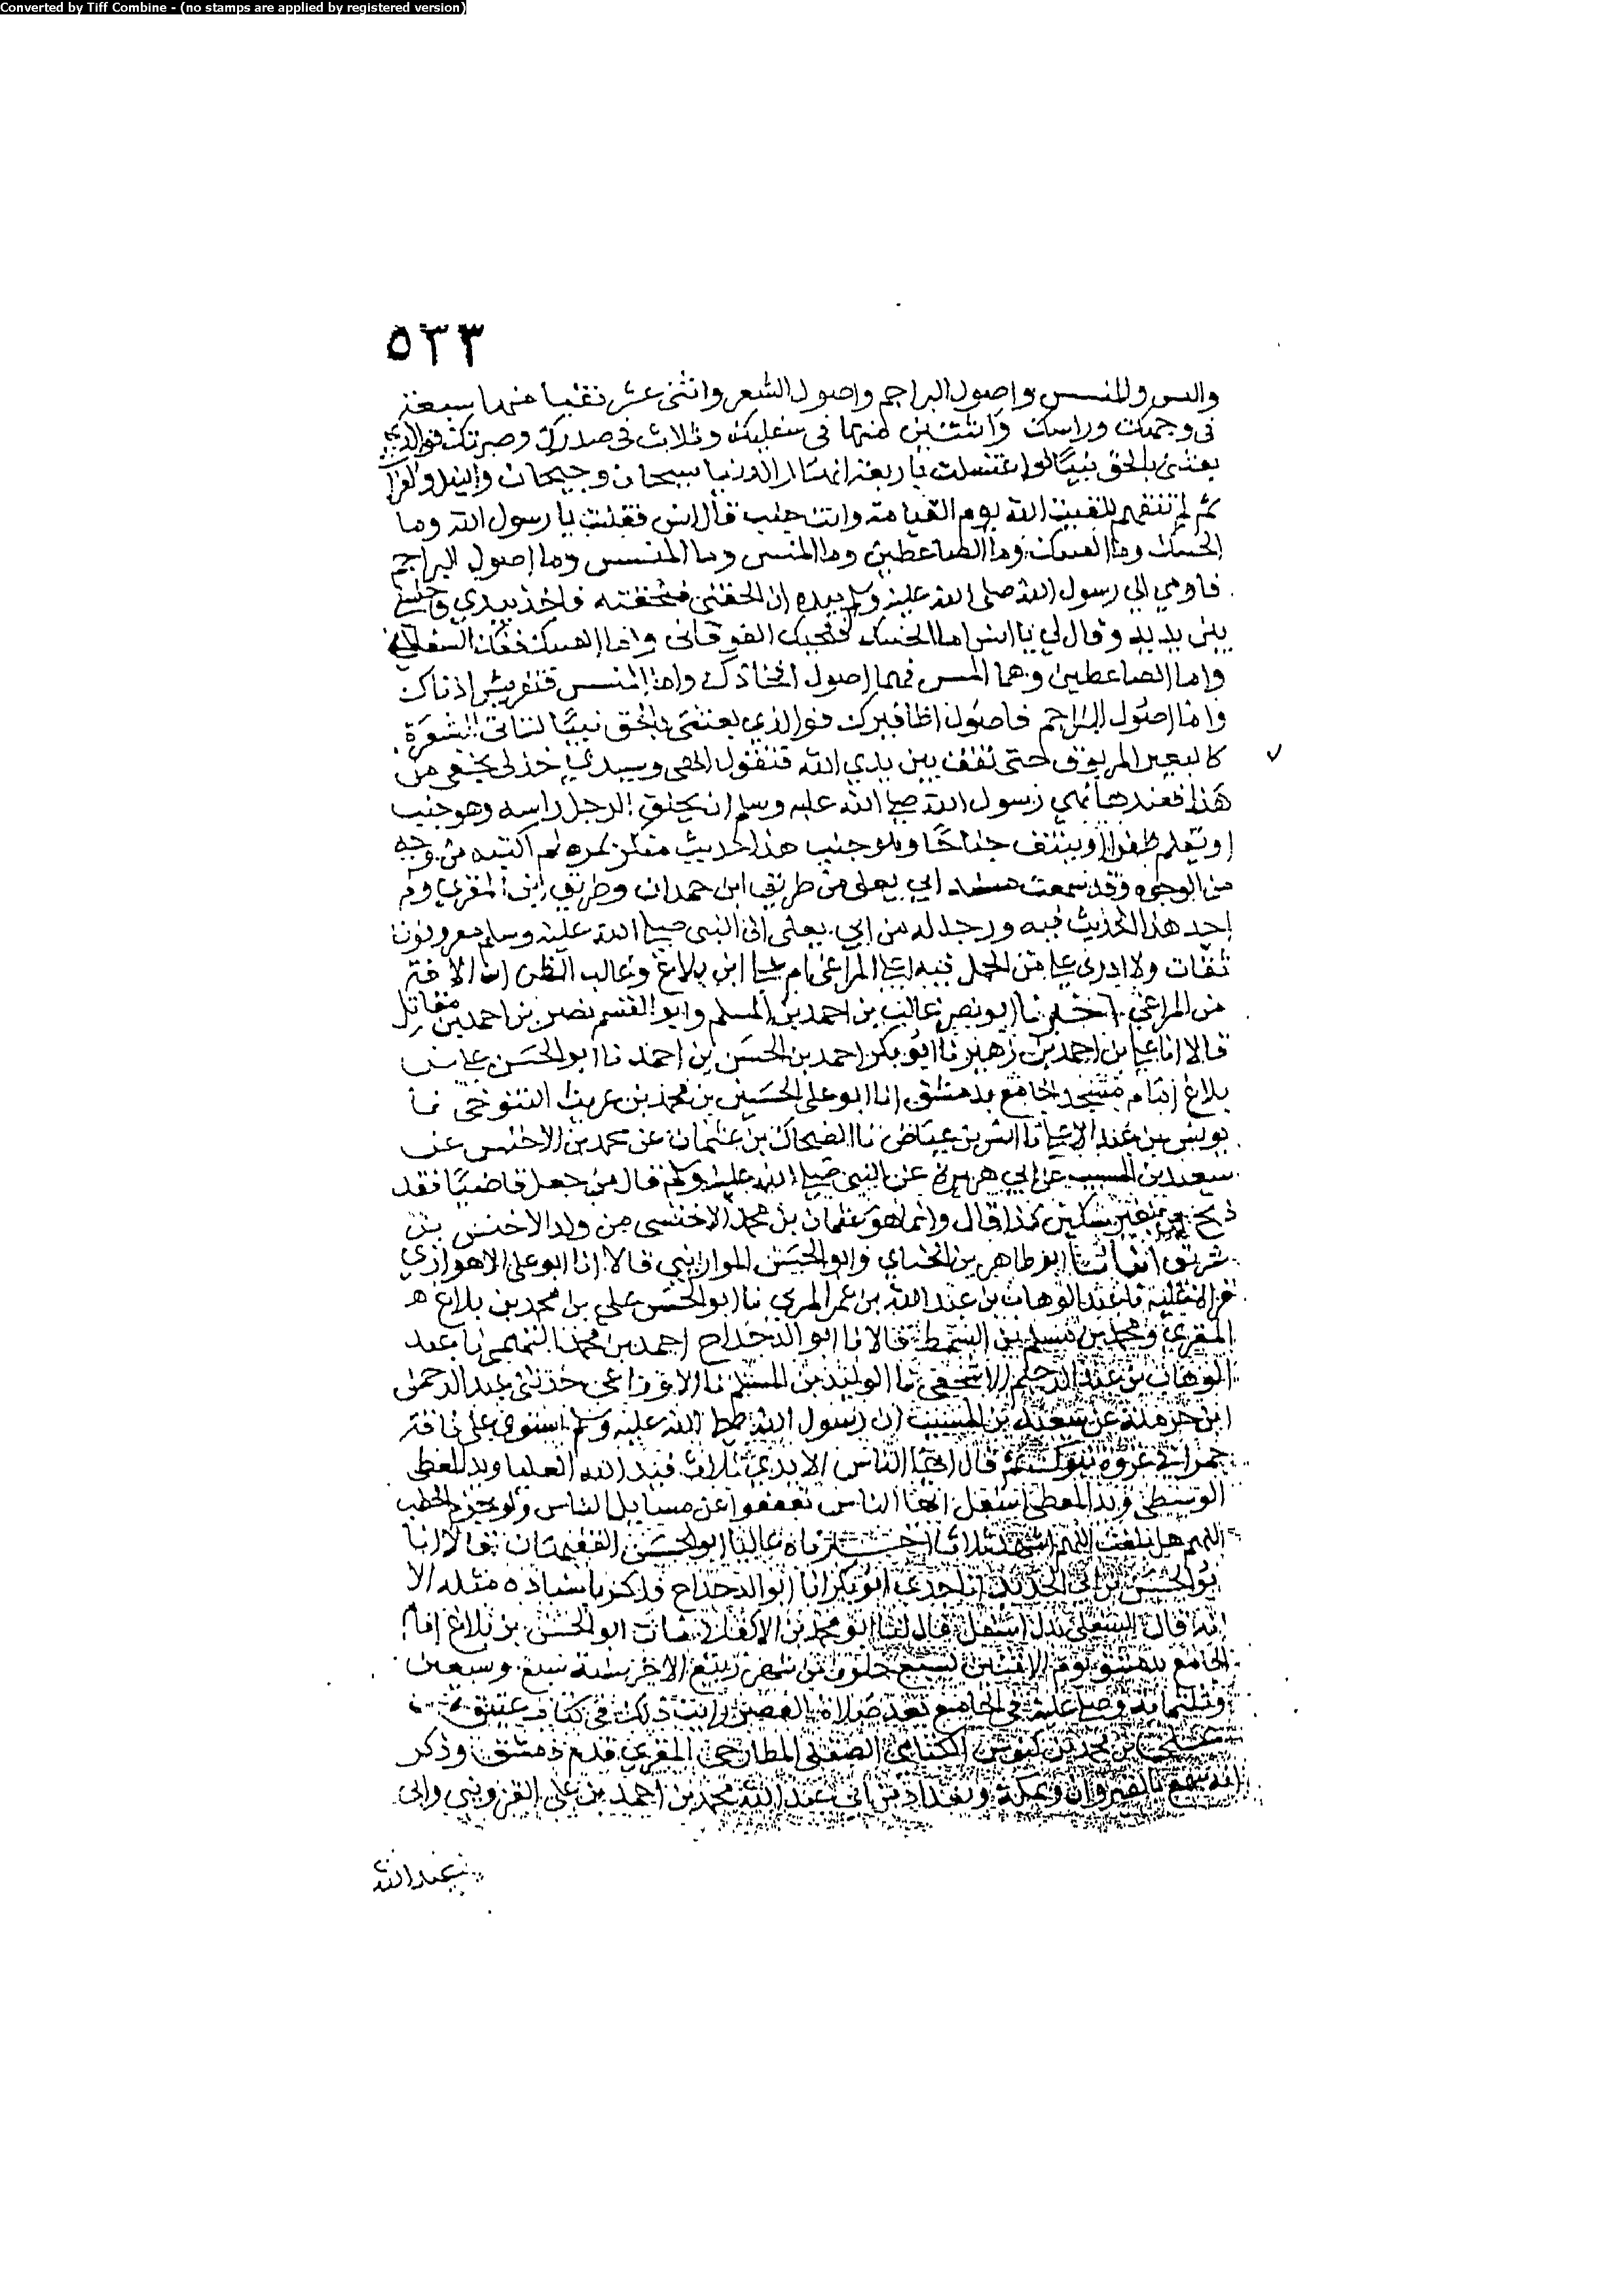 Converted by Tiff Combine - (no stamps are applied by registered version)
٥٣٣
والمنسس واصول البراجم واصول الشعر واثنى عشر نقبا منها سبعة
فى وجهك وراسك واثنتين منها فى سفليك وثلاث فى صدرك وصرتك فوالذي
بعثنى بالحق نبيا لو اغتسلت باربعة انهار الدنيا سيحان وجيحان والنيل والفرات
ثم لم تنقهم للقيت الله يوم القيامة وانت جنب قال انس فقلت يا رسول الله وما
الحسك وما المسك وما الصاعطين وما المنسى وما المنسس وما اصول البراجم
فاومي الي رسول الله صلى الله عليه وسلم بيده ان الحقنى فلحقته فاخذ بيدي واجلسني
بين يديه وقال لي يا انس اما الحسك فحنك الفوقانى واما المسك ففكك السفلي
واما الصاعطين وهما المس فهما اصول افخاذك واما المنسس فتفريش اذناك
واما اصول البراجم فاصول اظافيرك فوالذي بعثنى بالحق نبيا لتاتى الشعرة
كالبعير المربوق حتى تقف بين يدي الله فتقول الهى وسيدي خذلى بحقي من
هذا فعندها نهي رسول الله صلى الله عليه وسلم ان يحلق الرجل راسه وهو جنب
او يقلم ظفرا او ينتف جناحا وهو جنب هذا حديث منكر بمره لم اكتبه من وجه
من الوجوه وقد سمعت مسند ابي يعلى من طريق ابن حمدان وطريق ابن المقري ولم
اجد هذا الحديث فيه ورجاله من ابي يعلى الى النبى صلى الله عليه وسلم معروفون
ثقات ولا ادرى على من الحمل فيه اعلى المراغى ام على ابن بلاغ وغالب الظن ان الافة
من المراغي اخبرنا ابو نصر غالب بن احمد بن المسلم وابو القسم نصر بن احمد بن مقاتل
قالا انا علي بن احمد بن زهير نا ابو بكر احمد بن الحسن بن احمد نا ابو الحسن علي بن
بلاغ امام مسجد الجامع بدمشق انا ابو على الحسين بن محمد بن غريب التنوخى نا
يونس بن عبد الاعلى نا انس بن عياض نا الضحاك بن عثمان عن محمد بن الاخنس عن
سعيد بن المسيب عن ابي هريرة عن النبي صلى الله عليه وسلم قال من جعل قاضيا فقد
ذبح بغير سكين كذا قال وانما هو عثمان بن محمد الاخنسى من ولد الاخنس بن
شريق انبانا ابو طاهر بن الحناي وابو الحسن الموازيني قالا انا ابو على الاهوازي
قراة عليه نا عبد الوهاب بن عبد الله بن عمر المري نا ابو الحسن علي بن محمد بن بلاغ
المقري ومحمد بن مسلم بن السمط قالا نا ابو الدحداح احمد بن محمد التميمي نا عبد
الوهاب بن عبد الرحيم الاشجعى نا الوليد بن مسلم نا الاوزاعي حدثنى عبد الرحمن
ابن حرملة عن سعيد بن المسيب ان رسول الله صلى الله عليه وسلم استوى على ناقة
حمرا فى غزوة تبوك ثم قال ايها الناس الايدي ثلاث فيد الله العليا ويد المعطى
الوسطى ويد المعطى اسفل ايها الناس تعففوا عن مسايل الناس ولو بحزم الحطب
اللهم هل بلغت اللهم اشهد ثلاثا اخبرناه عاليا ابو الحسن الفقيهان قالا انا
ابو الحسن بن ابى الحديد انا جدي ابو بكر انا ابو الدحداح فذكر باسناده مثله الا
انه قال السفلى بدل اسفل قال لنا ابو محمد بن الاكفاني مات ابو الحسن بن بلاغ امام
الجامع بدمشق يوم الاثنين لسبع خلون من شهر ربيع الاخر سنة سبع وسبعين
وثلثماية وصلي عليه في الجامع بعد صلاة العصر رايت ذلك فى كتاب عتيق
علي بن محمد بن الصقلي المقري قدم دمشق وذكر
انه سمع بالقيروان وبمكة وبغداد من ابى عبد الله محمد بن احمد بن على القزويني وابى
عبد الله